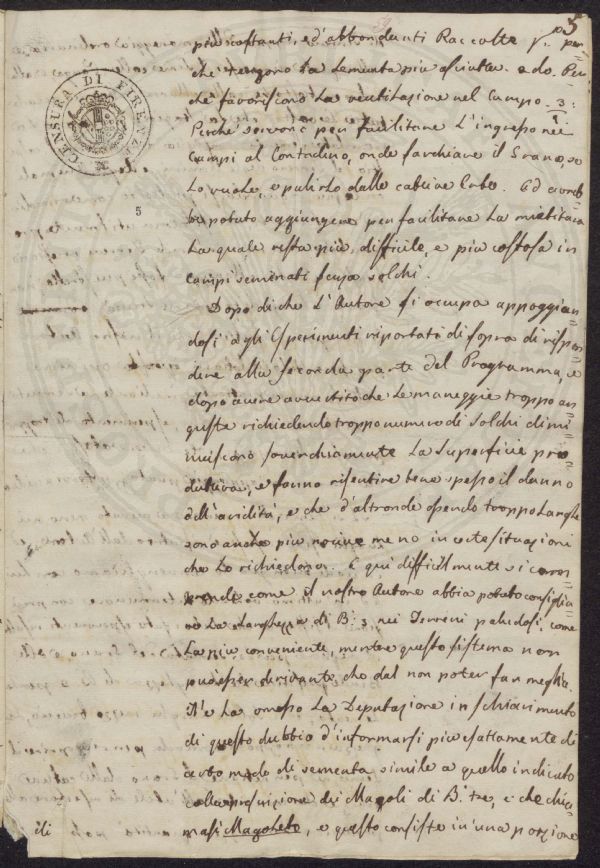 5
più costanti, ed'abbondanti Raccolte
che tengono La Sementa più asciutta. 2do. Per
chè favoriscono La ventilazione nel Campo. 3:
Perchè servono per facilitare L'ingresso nei
Campi al Contadino, onde sarchiare il Grano, se
Lo vuole, e pulirlo dalle cattive Erbe. Ed avreb
be potuto aggiungere per facilitare La mietitura
La quale resta più difficile, e più costosa in
campi seminati senza solchi.
Dopo di che L'Autore si occupa appoggian
dosi agli Esperimenti riportati di sopra di rispon
dere alla seconda parte del Programma, e
dopo avere avvertito che Le maneggie troppo an
guste richiedendo troppo numero di Solchi dimi
nuiscono soverchiamente La Superficie pro
duttiva, e fanno risentire bene spesso il danno
dell'aridità, e che d'altronde essendo troppo Larghe
sono anche più nocive meno in certe situazioni
che Lo richiedono. E quì difficilmente si com
prende come il nostro Autore abbia potuto consiglia
re La Larghezza di B: 3 nei Terreni paludosi, come
La più conveniente, mentre questo sistema non
può esser derivante che dal non poter far meglio.
Nè ha omesso La Deputazione in schiarimento
di questo dubbio d'informarsi più esattamente di
certo modo di sementa simile a quello indicato
dei Magoli di B: tre, e che chia
masi Magolato, e questo consiste in una porzione
CENSURA DI FIRENZE
5
ili